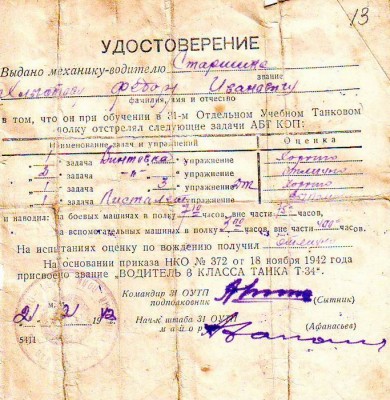 13
УДОСТОВЕРЕНИЕ
Выдано механику-водителю Старшина
звание
Федор Иванович
фамилия, имя и отчество
в том, что он при обучении в 31-м Отдельном Учебном Танковом
полку отстрелял следующие задачи АБТ КОП:
Наименование задач и упражнений Оценка
1 задача Винтовка упражнение хорошо
2 задача -"- упражнение отлично
1 задача 3 упражнение хорошо
1 задача Пистолет упражнение
и наводил: На боевых машинах в полку часов, вне части 15 часов,
на вспомогательных машинах в полку часов, вне части часов.
На испытаниях оценку по вождению получил отлично
На основании приказа НКО № 372 от 18 ноября 1942 года
присвоено звание „ВОДИТЕЛЬ 3 КЛАССА ТАНКА Т-34".
Командир 31 ОУТП
подполковник (Сытник)
м. п.
21/2 1943
Нач-к штаба 31 ОУТП
майор (Афанасьев)
5411